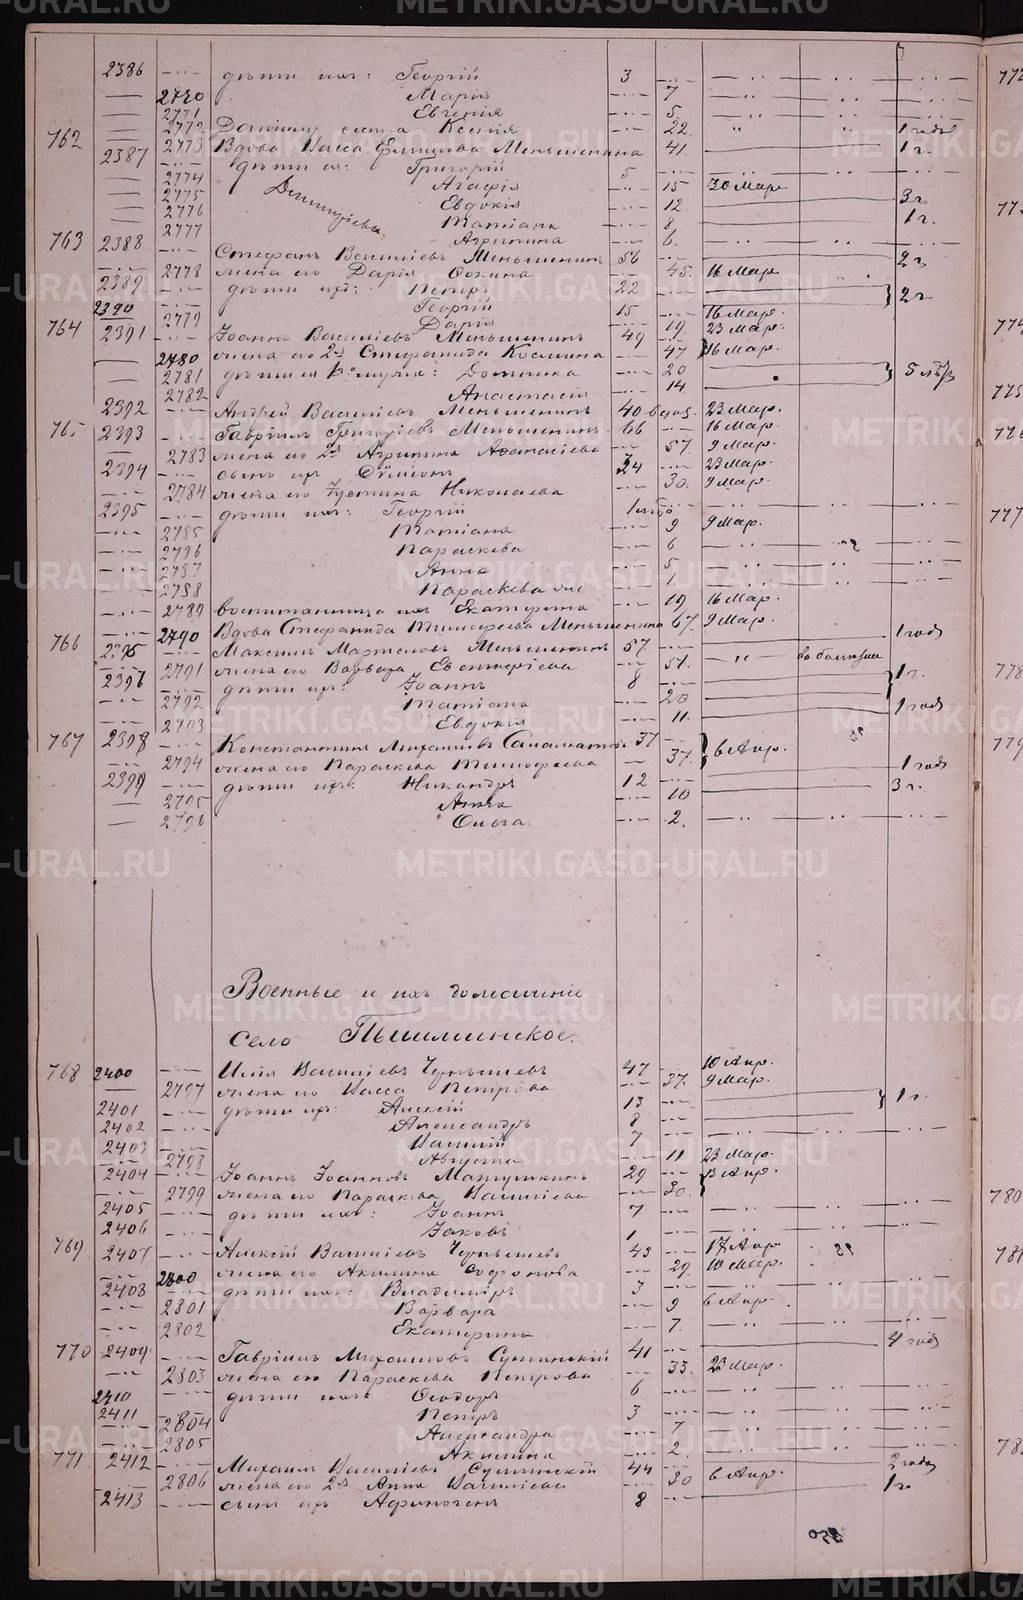 2386 дѣти ихъ: Георгій 3
2770 Марія 7
2771 Евгенія 5
2772 сестра Ксенія 22 1 годъ
762 2773 Вдова Васса Меньшенина 41 1 г.
2387 дѣти ея: Григорій 5
2774 Агафія 15 30 Мар.
2775 Евдокія 12 3 г.
2776 Татіана 8 1 г.
2777 Агрипина 6
763 2388 Стефанъ Василіевъ Меньшенинъ 56 2 г.
2778 жена его Дарія Фокина 45 16 Мар.
2389 дѣти ихъ: Петръ 22
2390 Георгій 15 2 г.
2779 Дарія 19 16 Мар.
764 2391 Іоаннъ Василіевъ Меньшенинъ 49 23 Мар.
2780 жена его 2я Стефанида Космина 47 16 Мар.
2781 дѣти ея 1го мужа: Домника 20
2782 Анастасія 14 5 лѣтъ
2392 Андрей Василіевъ Меньшенинъ 40 вдов. 23 Мар.
765 2393 Гавріилъ Григоріевъ Меньшенинъ 66 16 Мар.
2783 жена его 2я Агрипина Аѳанасіева 57 9 Мар.
2394 сынъ ихъ Сѵмеонъ 34 23 Мар.
2784 жена его Іустина Николаева 30 9 Мар.
2395 дѣти ихъ: Георгій
2785 Татіана 9 9 Мар.
2786 Параскева 6
2787 Анна 5
2788 Параскева 1
2789 воспитанница ихъ Екатерина 19 16 Мар.
2790 Вдова Стефанида Тимофеева Меньшенина 67 9 Мар.
766 2396 Максимъ Мартиновъ Меньшенинъ 57 1 годъ
2791 жена его Варвара Евстигнеева 51 въ болѣзни
2397 дѣти ихъ: Іоаннъ 8
2792 Татіана 20 1 г.
2793 Евдокія 11 1 годъ
767 2398 Константинъ Михаиловъ 37
2794 жена его Параскева Тимофеева 37 6 Апр.
2399 дѣти ихъ: Никандръ 12 1 годъ
2795 Анна 10 3 г.
2796 Ольга 2
Военные и ихъ домашніе
Село Пышминское.
768 2400 Илія Василіевъ Чернышевъ 47 10 Апр.
2797 жена его Васса Петрова 37 9 Мар.
2401 дѣти ихъ: Алексій 13 1 г.
2402 Александръ 8
2403 Василій 7
2798 Августа 11 23 Мар.
2404 Іоаннъ Іоанновъ Матушкинъ 29 13 Апр.
2799 жена его Параскева Василіева 30
2405 дѣти ихъ: Іоаннъ 7
2406 Іаковъ 1
769 2407 Алексій Василіевъ Чернышевъ 43 17 Апр.
2800 жена его Акилина Софонова 29 10 Мар.
2408 дѣти ихъ: Владиміръ 3
2801 Варвара 9 6 Апр.
2802 Екатерина 7
770 2409 Гавріилъ Михаиловъ Сушинскій 41 4 года
2803 жена его Параскева Петрова 33 23 Мар.
2410 дѣти ихъ: Ѳеодоръ 6
2411 Петръ 3
2804 Александра 7
2805 Акилина 2
771 2412 Михаилъ Василіевъ Сушинскій 44 2 года
2806 жена его 2я Анна Василіева 30 6 Апр. 1 г.
2413 сынъ ихъ Афиногенъ 8